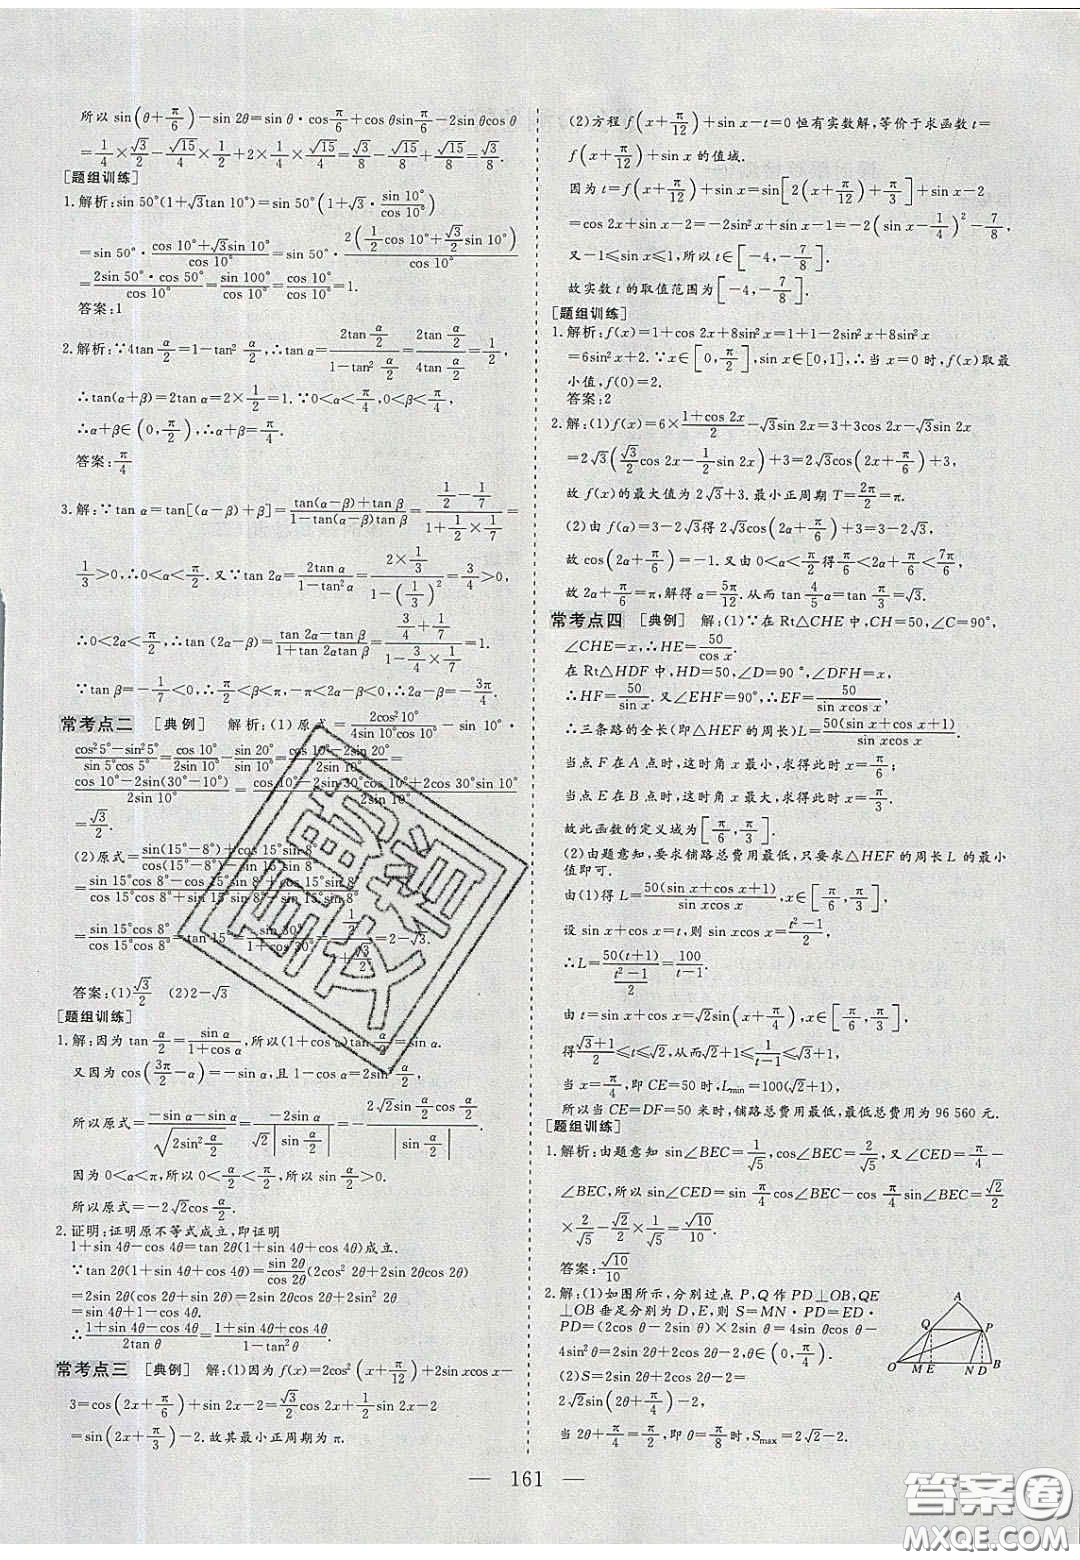 所以 sin(θ+π/6)-sin 2θ=sin θ·cos π/6+cos θsin π/6-2sin θcos θ
=1/4×√3/2-√15/4×1/2+2×1/4×√15/4=√15/8×√3/8.
[题组训练]
1.解析:sin 50°(1+√3tan 10°)=sin 50°(1+√3·sin 10°/cos 10°)
=sin 50°·(cos 10°+√3sin 10°)/cos 10°=sin 50°·2(1/2cos 10°+√3/2sin 10°)/cos 10°
=2sin 50°·cos 50°/cos 10°=sin 100°/cos 10°=cos 10°/cos 10°=1.
答案:1
2.解析:∵4tan α/2=1-tan² α/2,∴tan α=2tan α/2/(1-tan² α/2)=2tan α/2/(4tan α/2)=1/2,
∴tan(α+β)=2tan α=2×1/2=1.∵0<α<π/4,0<β<π/4,
∴α+β∈(0,π/2),∴α+β=π/4.
答案:π/4
3.解:∵tan α=tan[(α-β)+β]=(tan(α-β)+tan β)/(1-tan(α-β)tan β)=(1/2-1/7)/(1+1/2×1/7)=
1/3>0,∴0<α<π/2.又∵tan 2α=2tan α/(1-tan²α)=(2×1/3)/(1-(1/3)²)=3/4>0,
∴0<2α<π/2,∴tan (2α-β)=(tan 2α-tan β)/(1+tan 2αtan β)=(3/4+1/7)/(1-3/4×1/7)=1.
∵tan β=-1/7<0,∴π/2<β<π,-π<2α-β<0,∴2α-β=-3π/4.
常考点二 [典例] 解析:(1)原式=2cos²10°/(4sin 10°cos 10°)-sin 10°·
(cos²5°-sin²5°)/(sin 5°cos 5°)=cos 10°/(2sin 10°)-sin 20°/sin 10°=(cos 10°-2sin 20°)/(2sin 10°)=
(cos 10°-2sin(30°-10°))/(2sin 10°)=(cos 10°-cos 10°+√3sin 10°)/(2sin 10°)
=√3/2.
(2)原式=(sin(15°-8°)+cos 15°sin 8°)/(cos(15°-8°)-sin 15°sin 8°)=
=sin 15°cos 8°/(cos 15°cos 8°)=tan 15°=sin 30°/(1+cos 30°)=(1/2)/(1+√3/2)=2-√3.
答案:(1)√3/2 (2)2-√3
[题组训练]
1.解:因为 tan α/2=sin α/(1+cos α),所以(1+cos α)tan α/2=sin α.
又因为 cos(3π/2-α)=-sin α,且 1-cos α=2sin² α/2,
所以原式=(-sin α-sin α)/√(2sin² α/2)=-2sin α/(√2|sin α/2|)=-2√2sin α/2cos α/2/|sin α/2|.
因为 0<α<π,所以 0<α/2<π/2,所以 sin α/2>0.
所以原式=-2√2cos α/2.
2.证明:证明原不等式成立,即证明
1+sin 4θ-cos 4θ=tan 2θ(1+sin 4θ+cos 4θ)成立.
∵tan 2θ(1+sin 4θ+cos 4θ)=sin 2θ/cos 2θ(2cos² 2θ+2sin 2θcos 2θ)
=2sin 2θ(cos 2θ+sin 2θ)=2sin 2θcos 2θ+2sin²2θ
=sin 4θ+1-cos 4θ.
∴(1+sin 4θ-cos 4θ)/(2tan θ)=(1+sin 4θ+cos 4θ)/(1-tan²θ).
常考点三 [典例] 解:(1)因为 f(x)=2cos²(x+π/12)+2sin xcos x-
3=cos(2x+π/6)+sin 2x-2=√3/2cos 2x+1/2sin 2x-2
=sin(2x+π/3)-2.故其最小正周期为 π.
(2)方程 f(x+π/12)+sin x-t=0 恒有实数解,等价于求函数 t=
f(x+π/12)+sin x 的值域.
因为 t=f(x+π/12)+sin x=sin[2(x+π/12)+π/3]+sin x-2
=cos 2x+sin x-2=-2sin²x+sin x-1=-2(sin x-1/4)²-7/8,
又-1≤sin x≤1,所以 t∈[-4,-7/8].
故实数 t 的取值范围为[-4,-7/8].
[题组训练]
1.解析:f(x)=1+cos 2x+8sin²x=1+1-2sin²x+8sin²x
=6sin²x+2.∵x∈[0,π/2],sin x∈[0,1],∴当 x=0 时,f(x)取最
小值,f(0)=2.
答案:2
2.解:(1)f(x)=6×(1+cos 2x)/2-√3sin 2x=3+3cos 2x-√3sin 2x
=2√3(√3/2cos 2x-1/2sin 2x)+3=2√3cos(2x+π/6)+3,
故 f(x)的最大值为 2√3+3.最小正周期 T=2π/2=π.
(2)由 f(α)=3-2√3得 2√3cos(2α+π/6)+3=3-2√3,
故 cos(2α+π/6)=-1.又由 0<α<π/2得π/6<2α+π/6<7π/6,
故 2α+π/6=π,解得 α=5π/12.从而 tan 4/5α=tan π/3=√3.
常考点四 [典例] 解:(1)∵在 Rt△CHE 中,CH=50,∠C=90°,
∠CHE=x,∴HE=50/cos x.
在 Rt△HDF 中,HD=50,∠D=90°,∠DFH=x,
∴HF=50/sin x.又∠EHF=90°,∴EF=50/(sin xcos x),
∴三条路的全长(即△HEF 的周长)L=50(sin x+cos x+1)/(sin xcos x).
当点 F 在 A 点时,这时角 x 最小,求得此时 x=π/6;
当点 E 在 B 点时,这时角 x 最大,求得此时 x=π/3.
故此函数的定义域为[π/6,π/3].
(2)由题意知,要求铺路总费用最低,只要求△HEF 的周长 L 的最小
值即可.
由(1)得 L=50(sin x+cos x+1)/(sin xcos x),x∈[π/6,π/3],
设 sin x+cos x=t,则 sin xcos x=(t²-1)/2,
∴L=50(t+1)/((t²-1)/2)=100/(t-1).
由 t=sin x+cos x=√2sin(x+π/4),x∈[π/6,π/3],
得(√3+1)/2≤t≤√2,从而√2+1≤1/(t-1)≤√3+1,
当 x=π/4,即 CE=50 时,Lmin=100(√2+1),
所以当 CE=DF=50 米时,铺路总费用最低,最低总费用为 96 560 元.
[题组训练]
1.解析:由题意知 sin∠BEC=1/√5,cos∠BEC=2/√5,又∠CED=π/4-
∠BEC,所以 sin∠CED=sin π/4cos∠BEC-cos π/4sin∠BEC=√2/2
×2/√5-√2/2×1/√5=√10/10.
答案:√10/10
2.解:(1)如图所示,分别过点 P,Q 作 PD⊥OB,QE
⊥OB 垂足分别为 D,E,则 S=MN·PD=ED·
PD=(2cos θ-2sin θ)×2sin θ=4sin θcos θ-
4sin² θ=2sin 2θ+2cos 2θ-2,0<θ<π/4.
(2)S=2sin 2θ+2cos 2θ-2=
2√2sin(2θ+π/4)-2,
当 2θ+π/4=π/2,即 θ=π/8时,Smax=2√2-2.
A
Q P
O M E N D B
— 161 —
答案圈
MXQE.COM